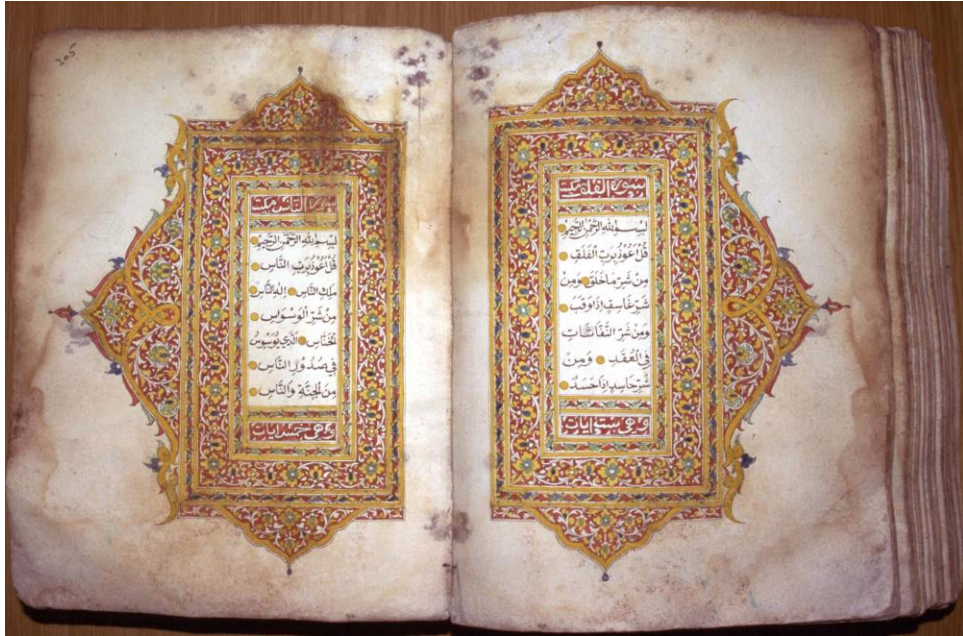 سورة الفلق مكية
بِسْمِ اللهِ الرَّحْمٰنِ الرَّحِيْمِ
قُلْ اَعُوْذُ بِرَبِّ الْفَلَقِ
مِنْ شَرِّ مَا خَلَقَ وَمِنْ
شَرِّ غَاسِقٍ اِذَا وَقَبَ
وَمِنْ شَرِّ النَّفَّاثَاتِ
فِي الْعُقَدِ وَمِنْ
شَرِّ حَاسِدٍ اِذَا حَسَدَ
وهي ست ايات
٢٠٥
سورة الناس مكية
بِسْمِ اللهِ الرَّحْمٰنِ الرَّحِيْمِ
قُلْ اَعُوْذُ بِرَبِّ النَّاسِ
مَلِكِ النَّاسِ اِلٰهِ النَّاسِ
مِنْ شَرِّ الْوَسْوَاسِ
الْخَنَّاسِ الَّذِيْ يُوَسْوِسُ
فِيْ صُدُوْرِ النَّاسِ
مِنَ الْجِنَّةِ وَالنَّاسِ
وهي خمس ايات